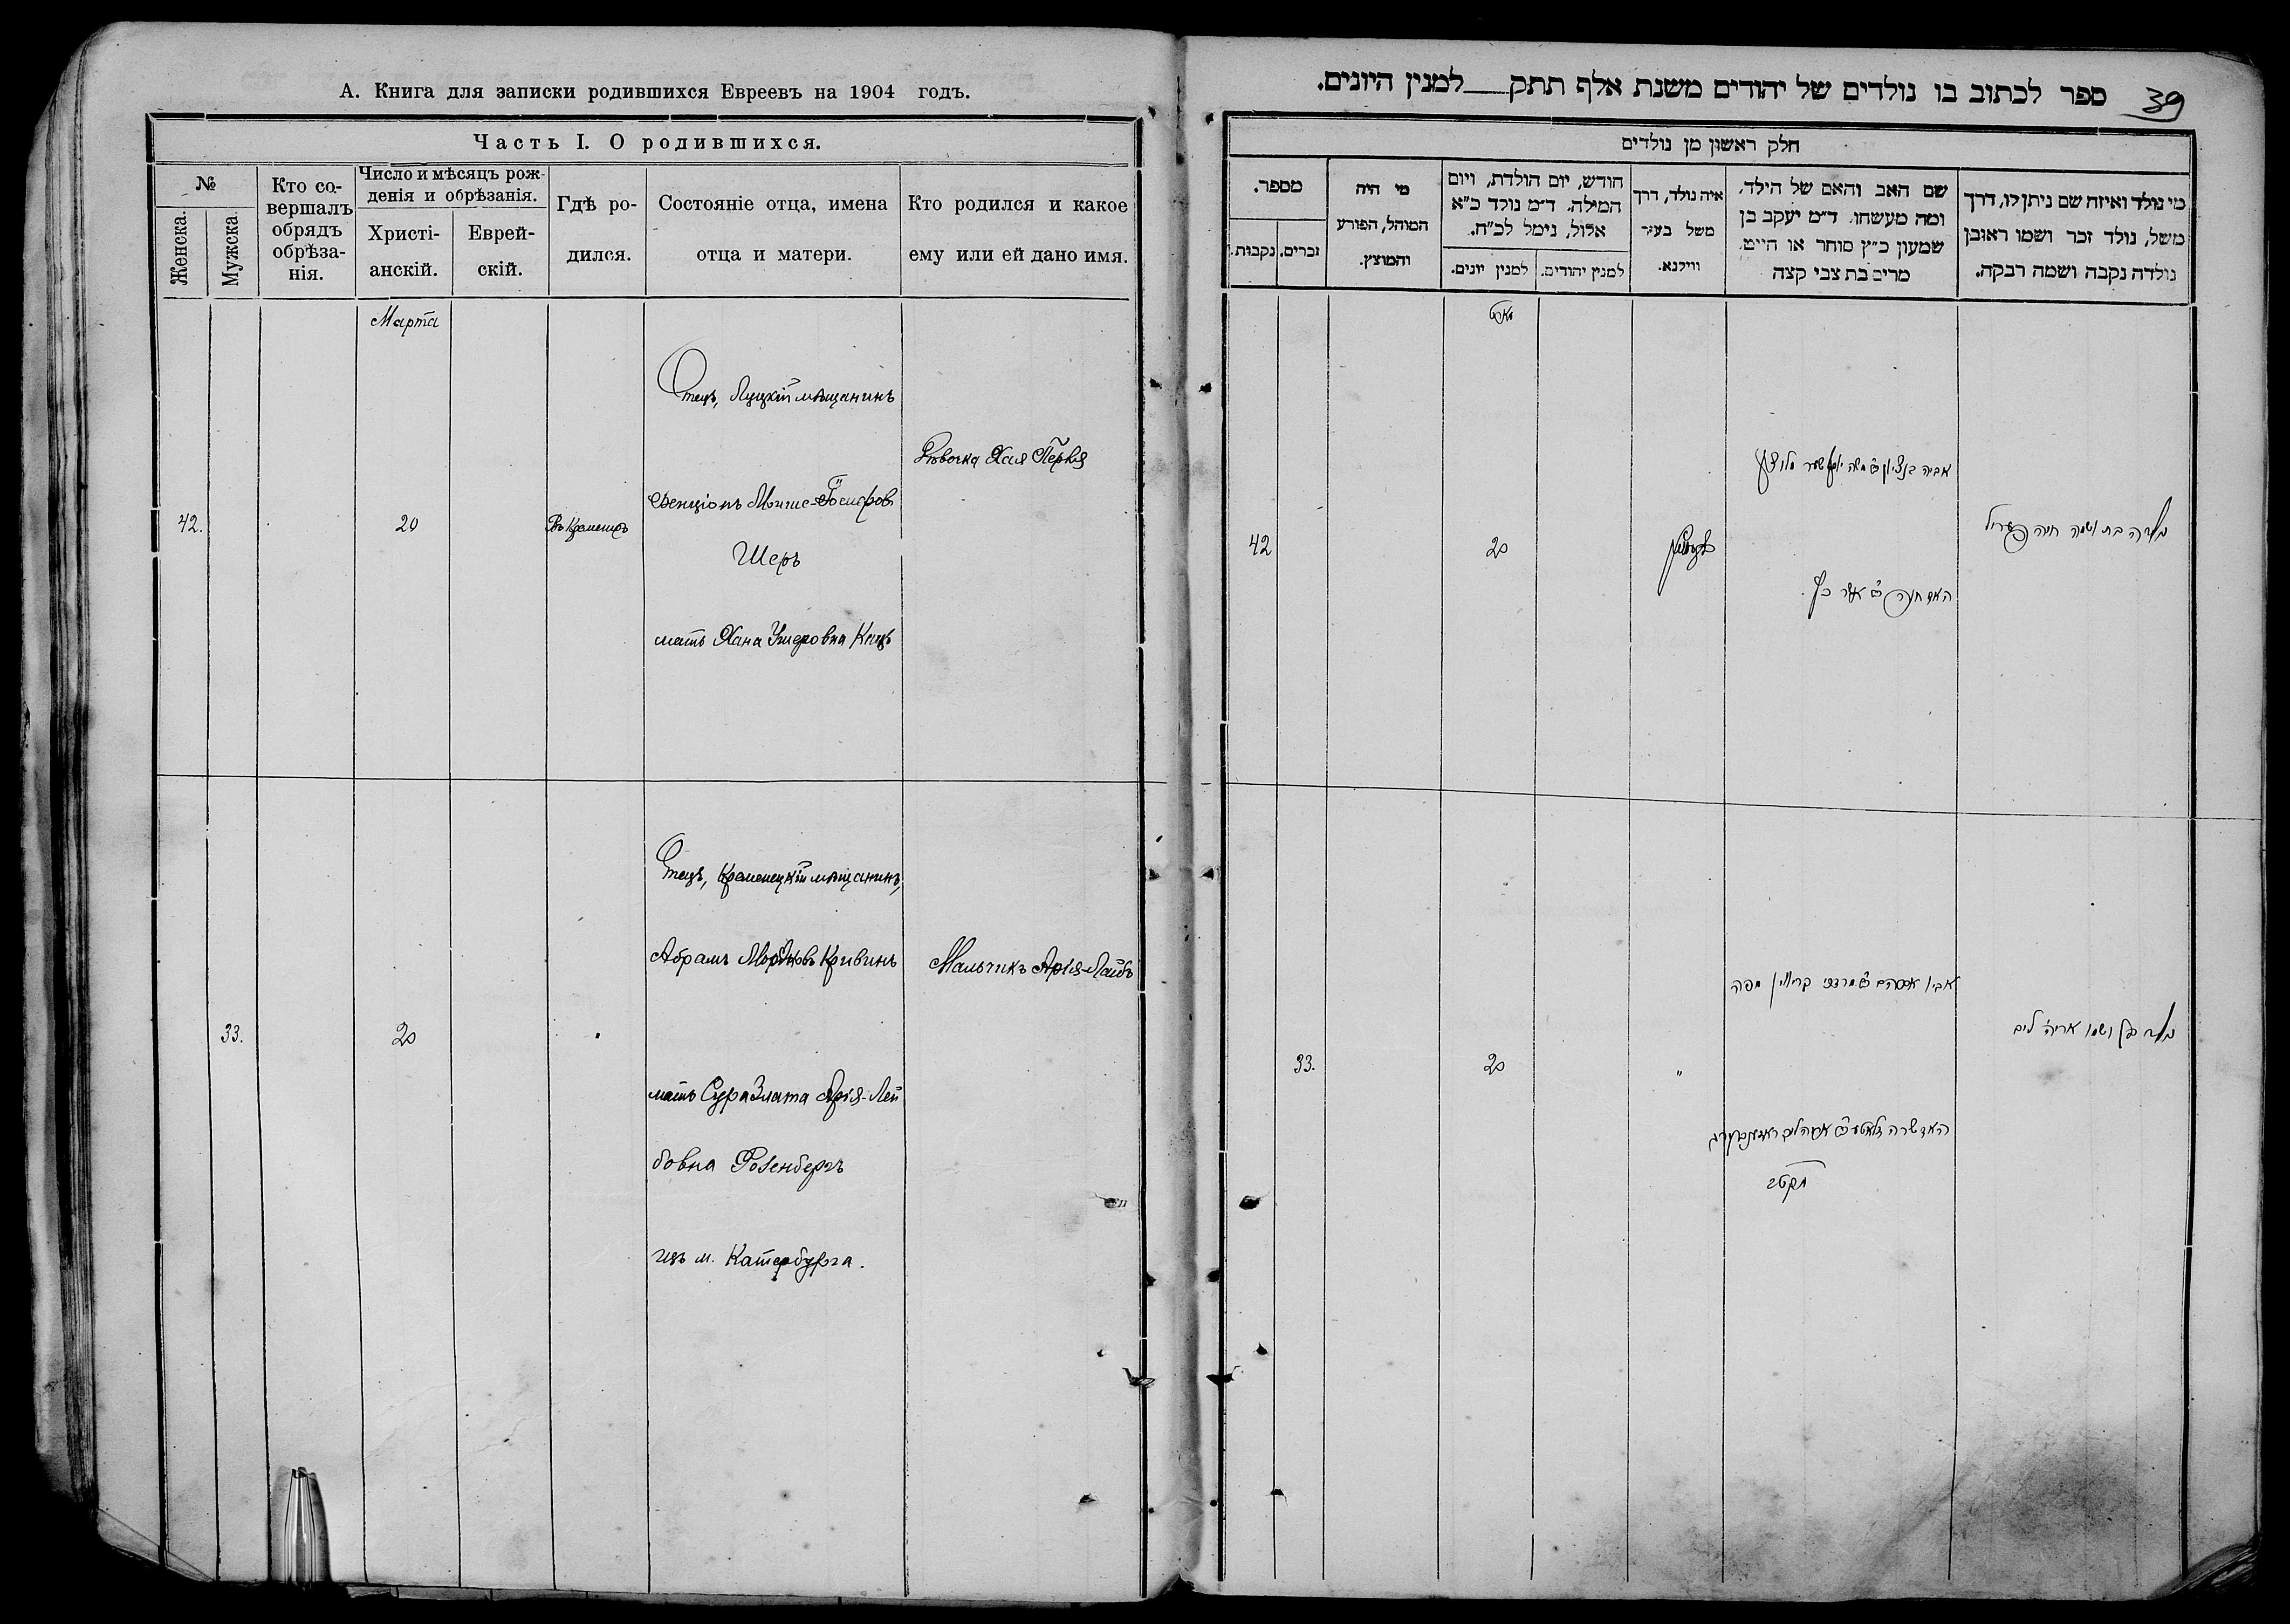 А. Книга для записки родившихся Евреевъ на 1904 годъ.
Часть I. О родившихся.
№
Женска.
Мужска.
Кто со-
вершалъ
обрядъ
обрѣза-
нія.
Число и мѣсяцъ рож-
денія и обрѣзанія.
Христі-
анскій.
Еврей-
скій.
Гдѣ ро-
дился.
Состояніе отца, имена
отца и матери.
Кто родился и какое
ему или ей дано имя.
Марта
42.
20
Въ Кременцѣ
Отецъ, Луцкій мѣщанинъ
Бенціонъ Мошко-Іосифов
Шеръ
мать Хана Ушеровна Кацъ
Дѣвочка Хая Перля
33.
20
"
Отецъ, Кременецкій мѣщанинъ,
Абрамъ Мордковъ Кривинъ
мать Сура Злата Арія-Лей
бовна Розенбергъ
изъ м. Катербурга.
Мальчикъ Арія-Лейбъ
39
ספר לכתוב בו נולדים של יהודים משנת אלף תתק___למנין היונים.
חלק ראשון מן נולדים
מי נולד ואיזה שם ניתן לו, דרך
משל, נולד זכר ושמו ראובן
נולדה נקבה ושמה רבקה.
שם האב והאם של הילד,
ומה מעשהו. ד"מ יעקב בן
שמעון כ"ץ סוחר או חייט,
מרים בת צבי קצה
איה נולד, דרך
משל בעיר
ווילנא.
חודש, יום הולדת, ויום
המילה. ד"מ נולד כ"א
אלול, נימל לכ"ח.
למנין יהודים.
למנין יונים.
מי היה
המוהל, הפורע
והמוצץ.
מספר.
זכרים.
נקבות.
מארט
נולדה בת ושמה חיה פערל
אביה בנציון משה יוסף שער
האם חנה אשר כץ
20
42
נולד בן ושמו אריה ליב
אביו אברהם מרדכי קריווין מפה
האם שרה זלאטע אריה ליב ראזענבערג
"
20
33.